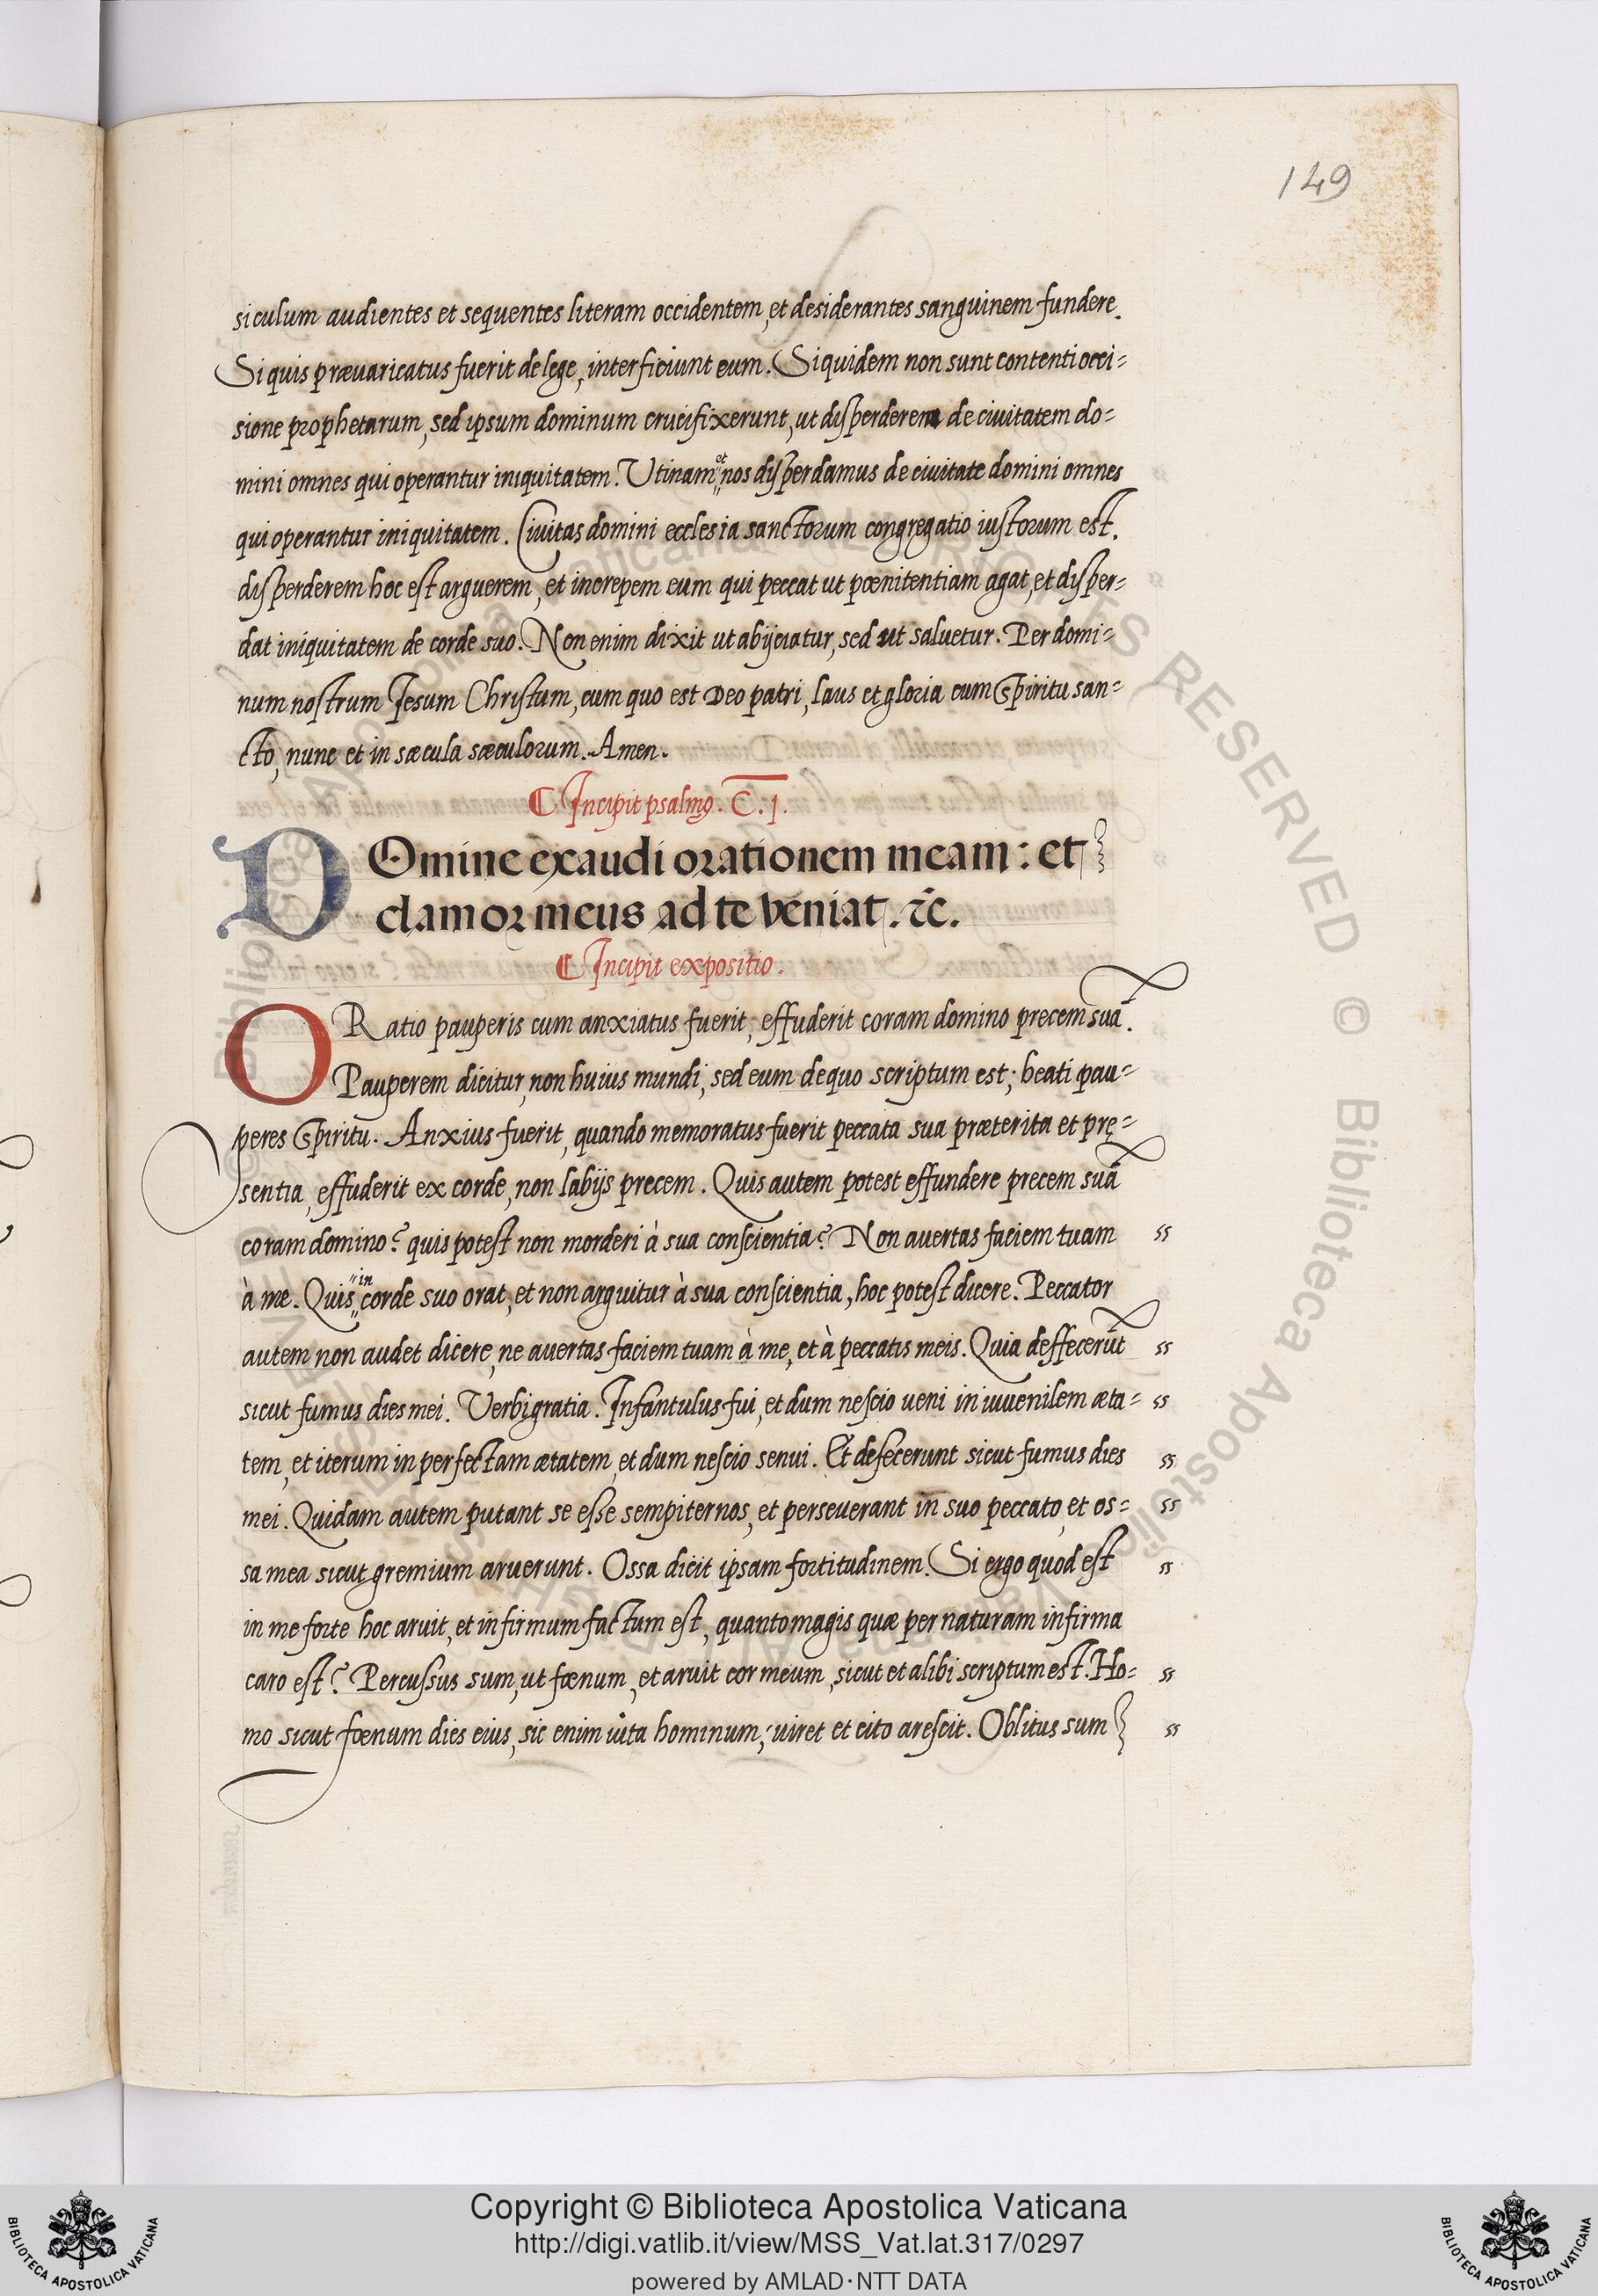 149
siculum audientes et sequentes literam occidentem, et desiderantes sanguinem fundere.
Si quis prævaricatus fuerit de lege, interficiunt eum. Siquidem non sunt contenti occi=
sione prophetarum, sed ipsum dominum crucifixerunt, ut disperderem de civitatem do=
mini omnes qui operantur iniquitatem. Utinam et nos disperdamus de civitate domini omnes
qui operantur iniquitatem. Civitas domini ecclesia sanctorum congregatio iustorum est.
disperderem hoc est arguerem, et increpem eum qui peccat ut pœnitentiam agat, et disper=
dat iniquitatem de corde suo. Non enim dixit ut abijciatur, sed ut saluetur. Per domi=
num nostrum Jesum Christum, cum quo est Deo patri, laus et gloria cum Spiritu san=
cto, nunc et in sæcula sæculorum. Amen.
¶ Incipit psalmꝯ. C̅. j.
DOmine exaudi orationem meam: et
clamor meus ad te veniat. ⁊c̄.
¶ Incipit expositio.
ORatio pauperis cum anxiatus fuerit, effuderit coram domino precem suā.
Pauperem dicitur, non huius mundi, sed eum de quo scriptum est; beati pau=
peres Spiritu. Anxius fuerit, quando memoratus fuerit peccata sua præterita et prę=
sentia, effuderit ex corde, non labijs precem. Quis autem potest effundere precem suā
coram domino? quis potest non morderi à sua conscientia? Non avertas faciem tuam ss
à me. Quis in corde suo orat, et non arguitur à sua conscientia, hoc potest dicere. Peccator
autem non audet dicere, ne avertas faciem tuam à me, et à peccatis meis. Quia deffecerūt ss
sicut fumus dies mei. Verbigratia. Infantulus fui, et dum nescio veni in iuvenilem æta= ss
tem, et iterum in perfectam ætatem, et dum nescio senui. Et defecerunt sicut fumus dies ss
mei. Quidam autem putant se esse sempiternos, et perseverant in suo peccato, et os= ss
sa mea sicut gremium aruerunt. Ossa dicit ipsam fortitudinem. Si ergo quod est ss
in me forte hoc aruit, et infirmum factum est, quanto magis quæ per naturam infirma
caro est? Percussus sum, ut fœnum, et aruit cor meum, sicut et alibi scriptum est. Ho= ss
mo sicut fœnum dies eius, sic enim vita hominum, viret et cito arescit. Oblitus sum ss
Copyright © Biblioteca Apostolica Vaticana
http://digi.vatlib.it/view/MSS_Vat.lat.317/0297
powered by AMLAD·NTT DATA
BIBLIOTECA APOSTOLICA VATICANA
BIBLIOTECA APOSTOLICA VATICANA